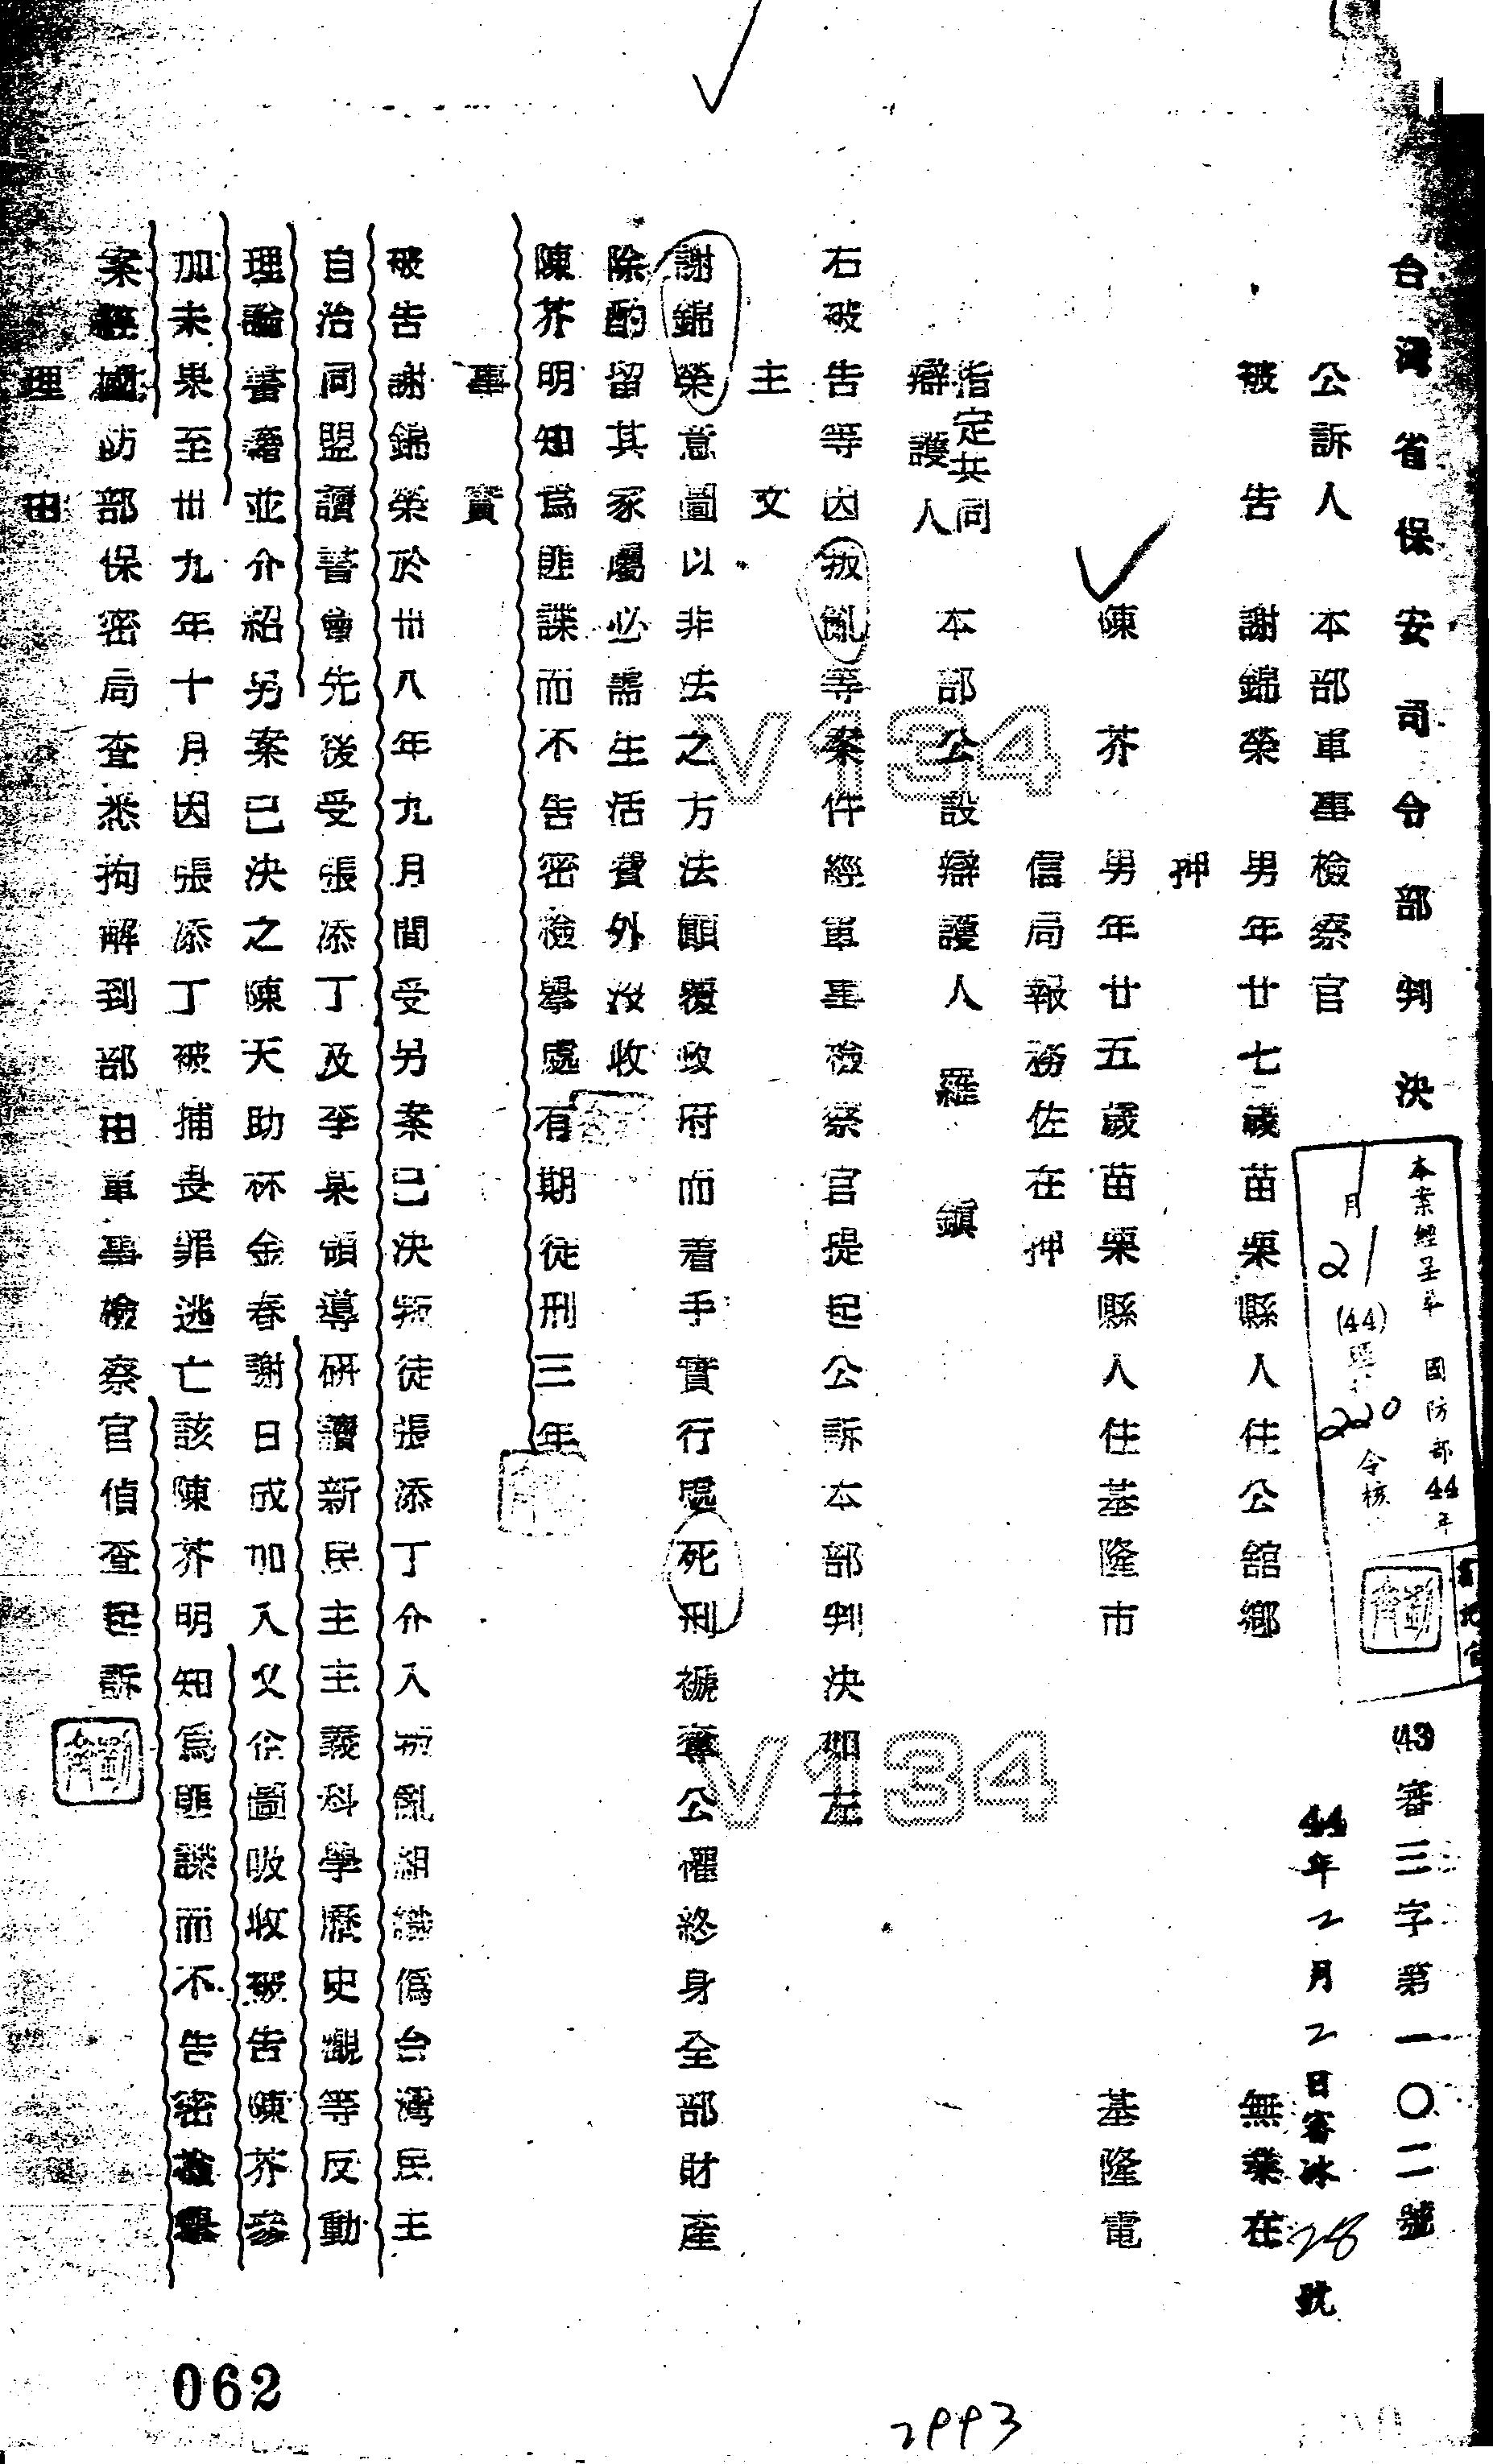 台灣省保安司令部判決
(43)審三字第一〇二號
44年2月2日審冰28號
本案經呈奉 國防部44年
月21
(44)
220
令核
公訴人 本部軍事檢察官
被告 謝錦榮 男年廿七歲苗栗縣人住公館鄉 無業在
押
陳芥 男年廿五歲苗栗縣人住基隆市 基隆電
信局報務佐在押
指定共同
辯護人 本部公設辯護人 羅鎮
右被告等因叛亂等案件經軍事檢察官提起公訴本部判決如左
主文
謝錦榮意圖以非法之方法顛覆政府而着手實行處死刑褫奪公權終身全部財產
除酌留其家屬必需生活費外沒收
陳芥明知爲匪諜而不告密檢舉處有期徒刑三年
事實
被告謝錦榮於卅八年九月間受另案已決叛徒張添丁介入叛亂組織僞台灣民主
自治同盟讀誓會先後受張添丁及李某領導研讀新民主主義科學歷史觀等反動
理論書籍並介紹另案已決之陳天助林金春謝日成加入又企圖吸收被告陳芥參
加未果至卅九年十月因張添丁被捕畏罪逃亡該陳芥明知爲匪諜而不告密檢舉
案經國防部保密局查悉拘解到部由軍事檢察官偵查起訴
理由
V134
V134
062
2993